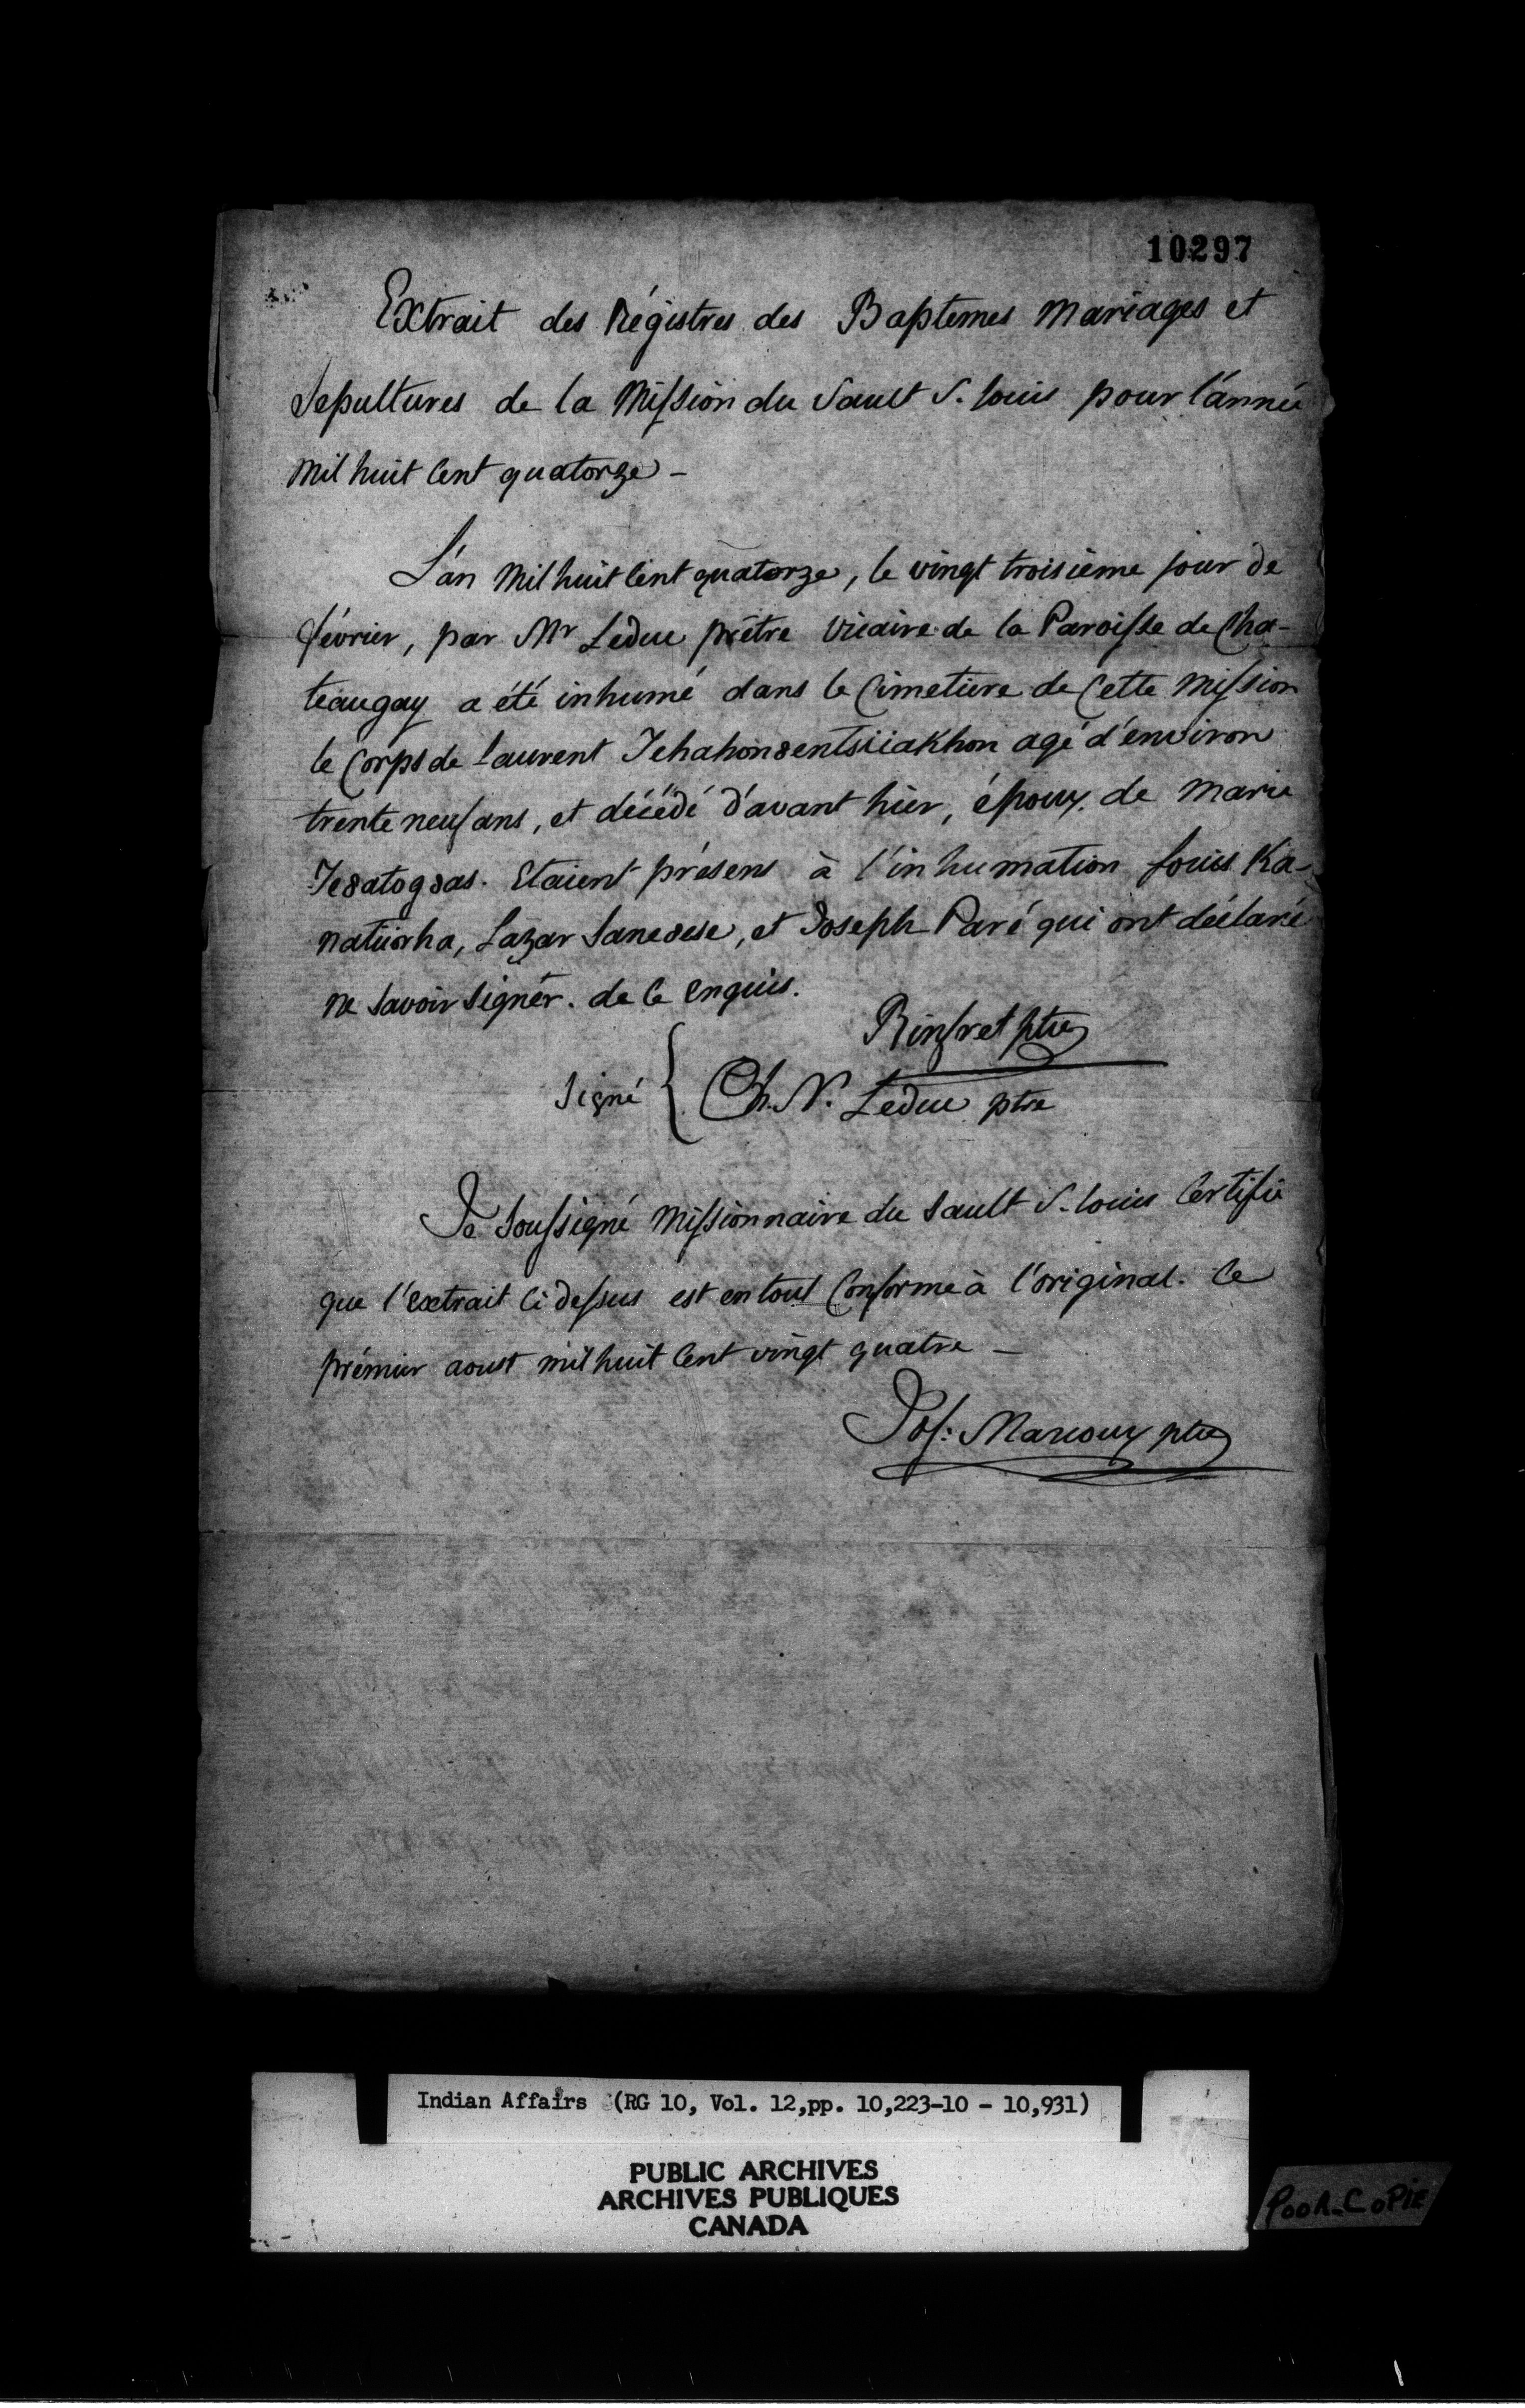 10297
Extrait des Régistres des Baptemes Mariages et
Sepultures de la Mission du Sault S. Louis pour l'année
Mil huit Cent quatorze -
L'an Mil huit Cent quatorze, le vingt troisième jour de
février, par Mr Leduc prêtre Vicaire de la Paroisse de Cha-
teaugay a été inhumé dans le Cimetiere de Cette Mission
le Corps de Laurent Tehahon8entsiiakhon agé d'environ
trente neuf ans, et décédé d'avant hier, époux de Marie
Te8atog8as. Etaient présens à l'inhumation Louis Ka-
natiiorha, Lazar Sane8ese, et Joseph Paré qui ont déclaré
ne Savoir Signér. de Ce enquis.
Rinfret ptre
Signé { Ch. N. Leduc ptre
Je Soussigné Missionnaire du Sault S. Louis Certifie
que l'extrait Ci dessus est en tout Conforme à l'original. Ce
prémier aoust mil huit Cent vingt quatre -
Jos: Marcoux ptre
Indian Affairs (RG 10, Vol. 12,pp. 10,223-10 - 10,931)
PUBLIC ARCHIVES
ARCHIVES PUBLIQUES
CANADA
POOR COPIE